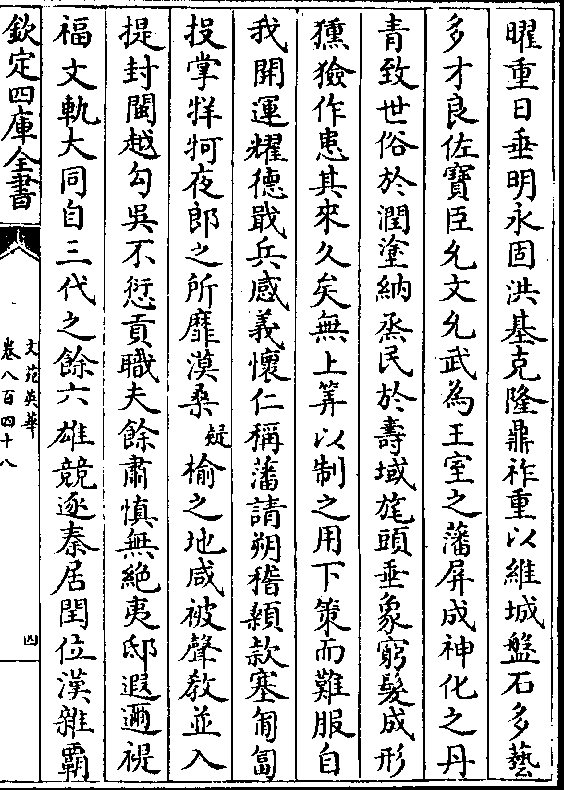 曜重日垂明永固洪基克隆鼎祚重以維城盤石多藝
多才良佐寶臣允文允武為王室之藩屏成神化之丹
青致世俗於潤塗納烝民於壽域旄頭垂象窮髮成形
獯獫作患其來久矣無上筭以制之用下策而難服自
我開運耀德戢兵感義懷仁稱藩請朔稽顙款塞匍匐
投掌牂牁夜郎之所靡漠桑疑榆之地咸被聲敎並入
提封閩越勾吳不愆貢職夫餘肅慎無絕夷邸遐邇禔
福文軌大同自三代之餘六雄競逐秦居閏位漢雜霸
欽定四庫全書
文苑英華
卷八百四十八
四